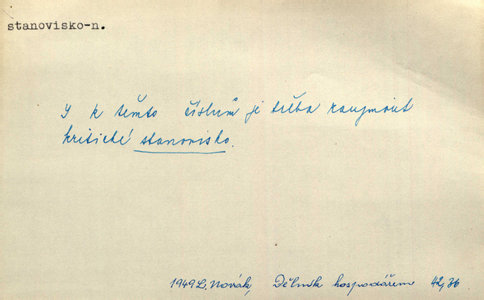 stanovisko-n.
I k těmto číslům je třeba zaujmout
kritické stanovisko.
1949 L. Novák, Dělník hospodářem 42,36